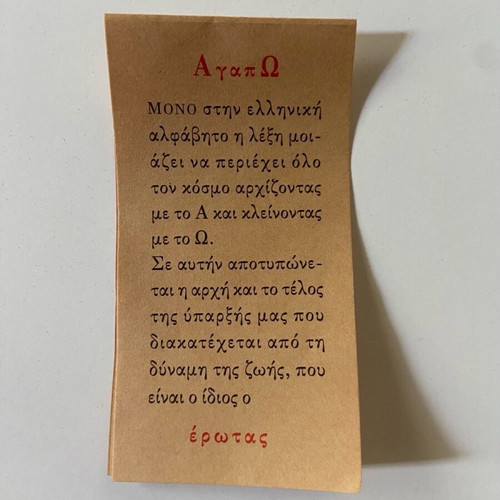 ΑγαπΩ
ΜΟΝΟ στην ελληνική
αλφάβητο η λέξη μοι-
άζει να περιέχει όλο
τον κόσμο αρχίζοντας
με το Α και κλείνοντας
με το Ω.
Σε αυτήν αποτυπώνε-
ται η αρχή και το τέλος
της ύπαρξής μας που
διακατέχεται από τη
δύναμη της ζωής, που
είναι ο ίδιος ο
έρωτας